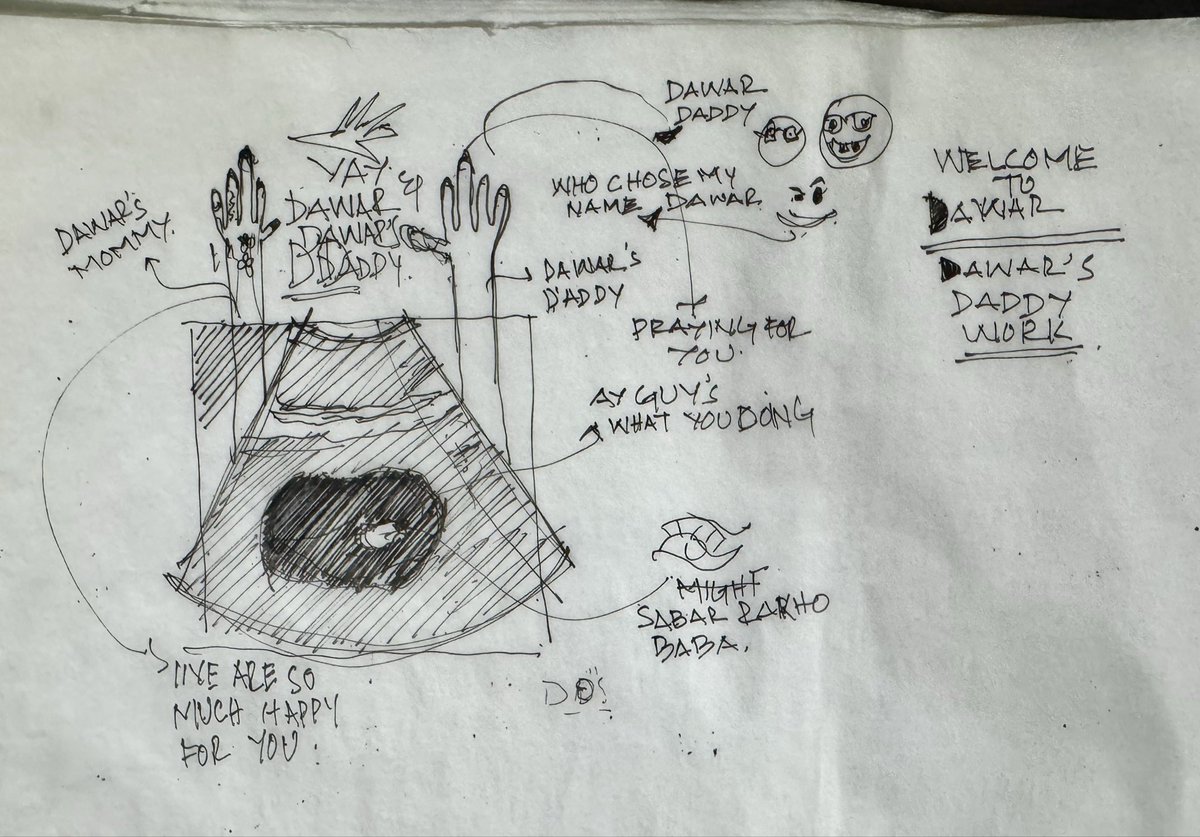 DAWAR
DADDY
WHO CHOSE MY
NAME DAWAR
WELCOME
TO
DAWAR
DAWAR'S
DADDY
WORK
DAWAR'S
MOMMY.
YAY
DAWAR
DAWAR'S
DADDY.
DAWAR'S
DADDY
PRAYING FOR
YOU.
AY GUY'S
WHAT YOU DOING
MIGHT
SABAR RAKHO
BABA.
WE ARE SO
MUCH HAPPY
FOR YOU.